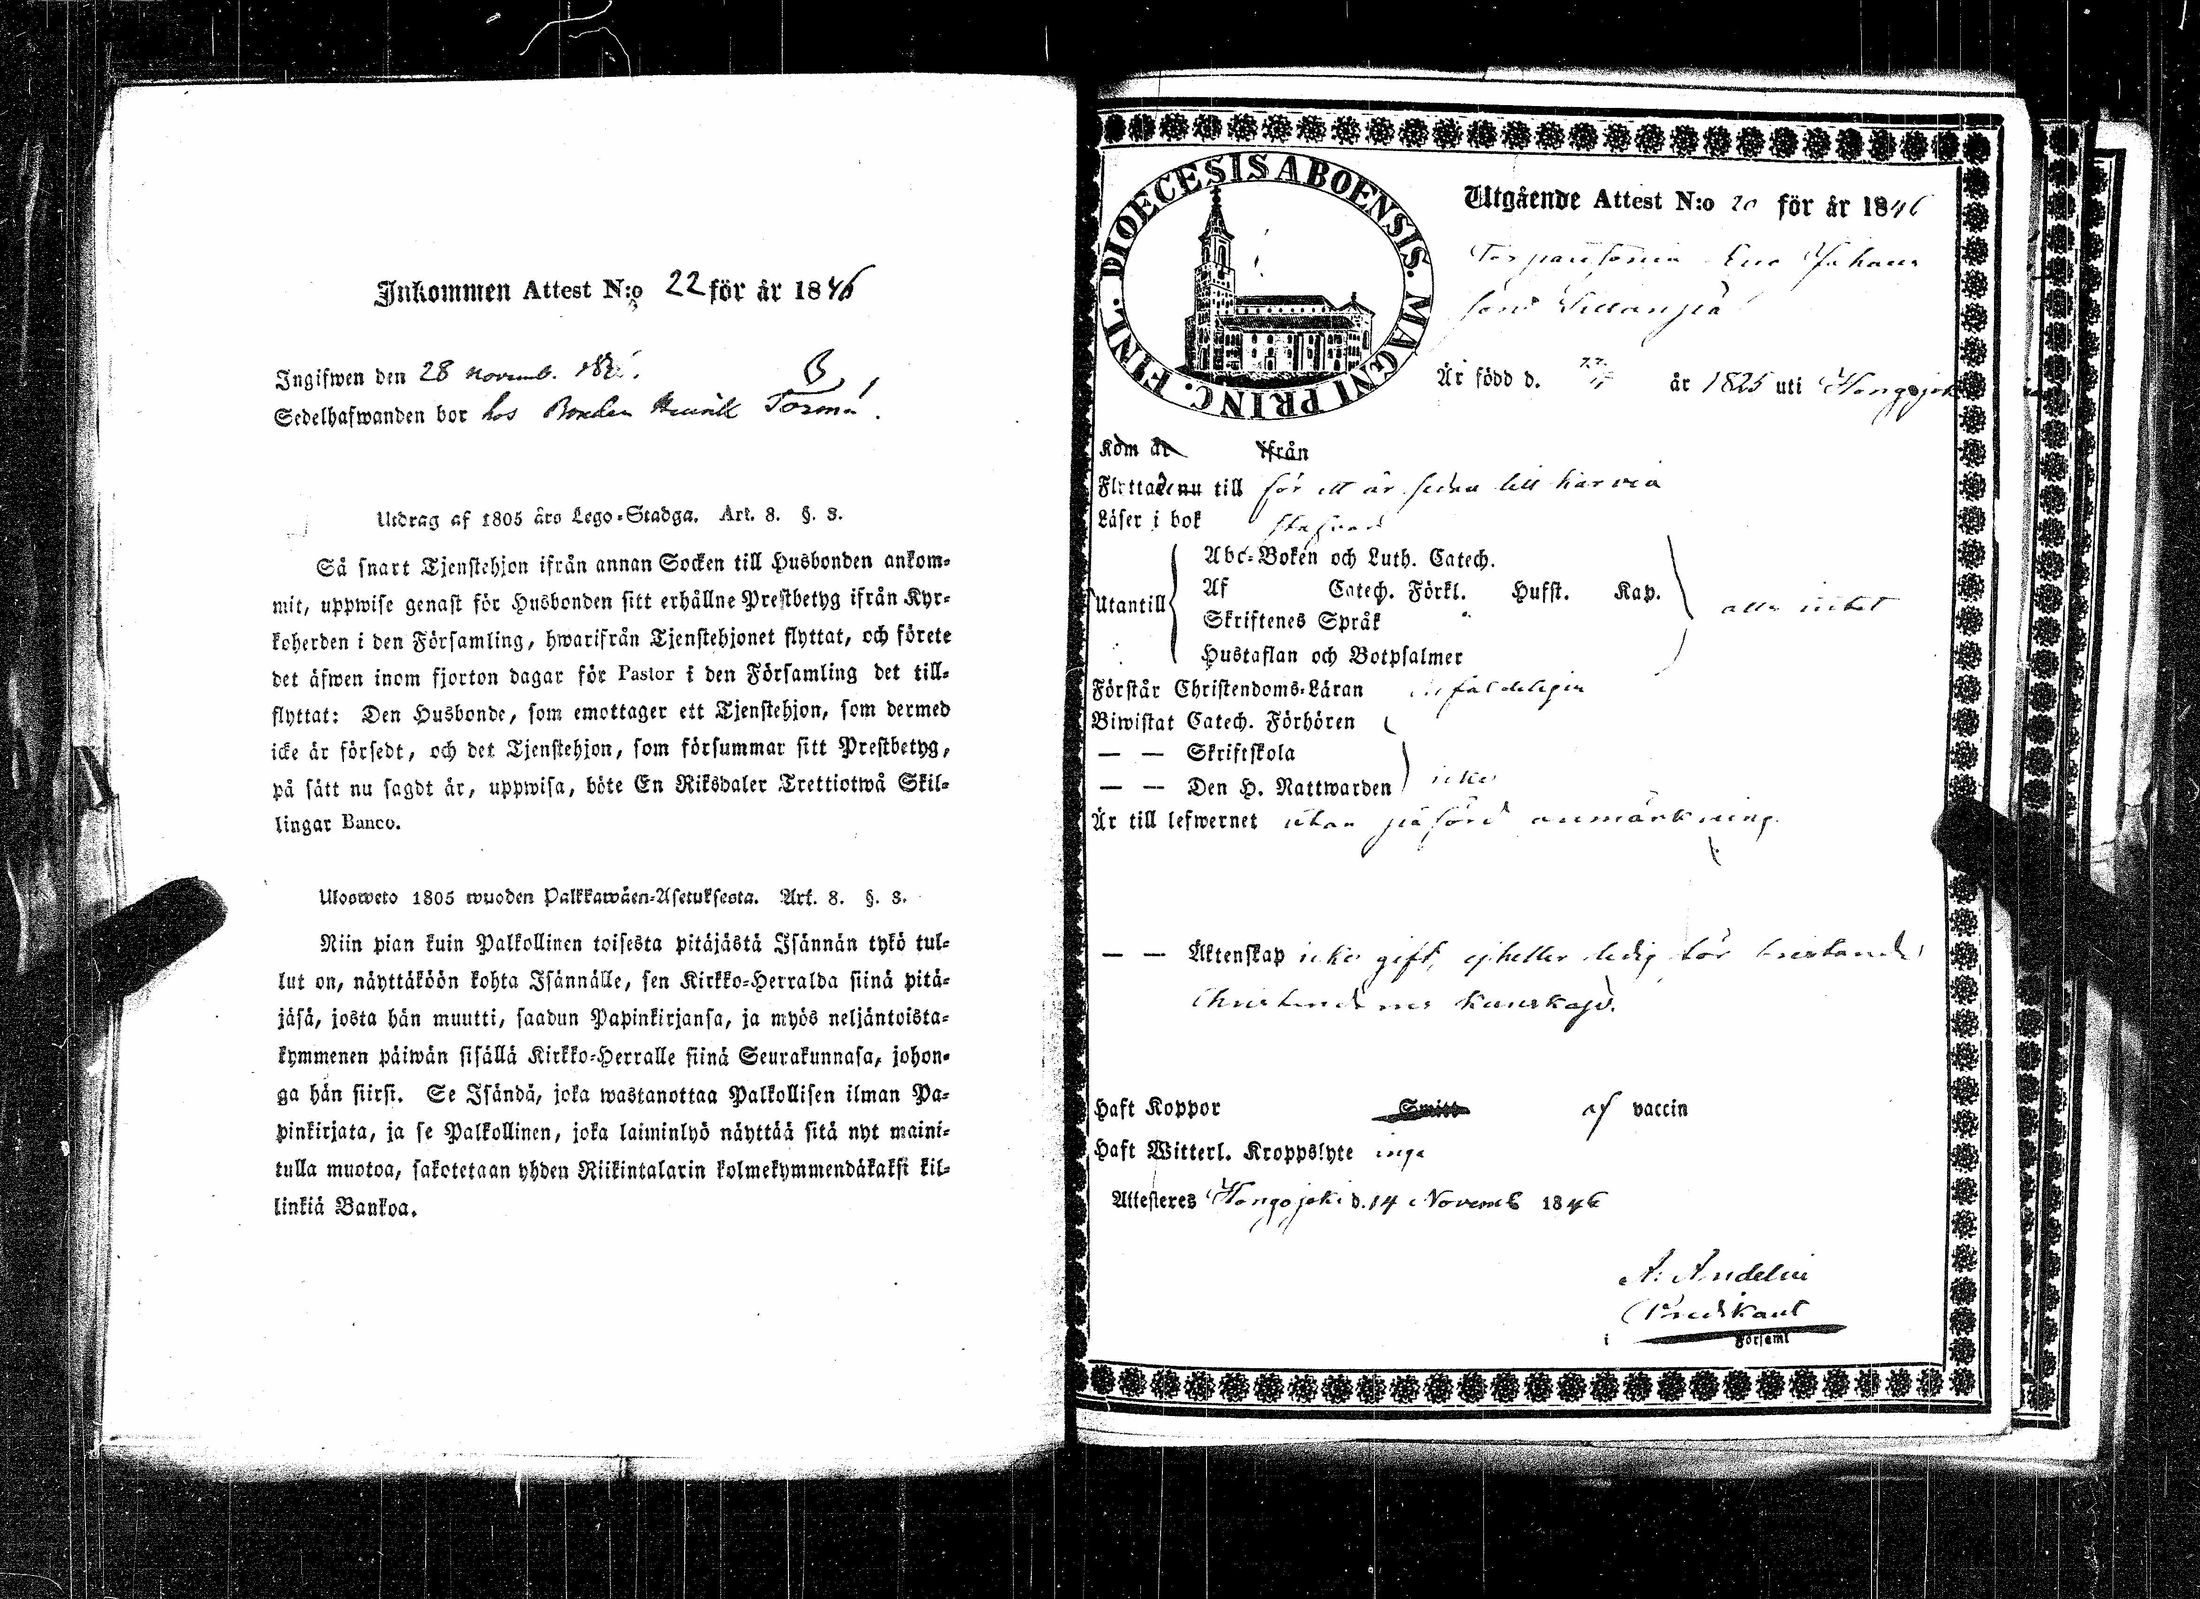 Inkommen Attest N:o 22 för år 1846
Ingifwen den 28 novemb.
Sedelhafwanden bor hos Bonden Henrik Tormä.
Utdrag af 1805 års Lego-Stadga. Art. 8. §. 3.
Så snart Tjenstehjon ifrån annan Socken till Husbonden ankom-
mit, uppwise genast för Husbonden sitt erhållne Prestbetyg ifrån Kyr-
koherden i den Församling, hwarifrån Tjenstehjonet flyttat, och förete
det äfwen inom fjorton dagar för Pastor i den Församling det till-
flyttat: Den Husbonde, som emottager ett Tjenstehjon, som dermed
icke är försedt, och det Tjenstehjon, som försummar sitt Prestbetyg,
på sätt nu sagdt är, uppwisa, böte En Riksdaler Trettiotwå Skil-
lingar Banco.
Ulosweto 1805 wuoden Palkkawäen-Asetuksesta. Art. 8. §. 3.
Niin pian kuin Palkollinen toisesta pitäjästä Isännän tykö tul-
lut on, näyttäköön kohta Isännälle, sen Kirkko-Herralda siinä pitä-
jäsä, josta hän muutti, saadun Papinkirjansa, ja myös neljäntoista-
kymmenen päiwän sisällä Kirkko-Herralle siinä Seurakunnasa, johon-
ga hän siirsi. Se Isändä, joka wastanottaa Palkollisen ilman Pa-
pinkirjata, ja se Palkollinen, joka laiminlyö näyttää sitä nyt maini-
tulla muotoa, sakotetaan yhden Riikintalarin kolmekymmendäkaksi kil-
linkiä Bankoa.
DIOECESIS ABOENSIS. MAGNI PRINC. FINL.
Utgående Attest N:o 20 för år 1846
Johans
Är född d. år 1825 uti Hongojoki
Kom år ifrån
Flyttade nu till för ett år sedan till
Läser i bok
Utantill
Abc-Boken och Luth. Catech.
Af Catech. Förkl. Husst. Kap.
Skriftenes Språk
Hustaflan och Botpsalmer
alls intet
Förstår Christendoms-Läran
Biwistat Catech. Förhören
— — Skriftskola
— — Den H. Nattwarden icke
Är till lefwernet utan påförd anmärkning
— — Äktenskap icke gift, ejheller ledig för bristande
Christendoms kunskap.
Haft Koppor Smitt af vaccin
Haft Witterl. Kroppslyte inga
Attesteres Hongojoki d. 14 Novemb 1846
A. Andelin
Predikant
i Församl